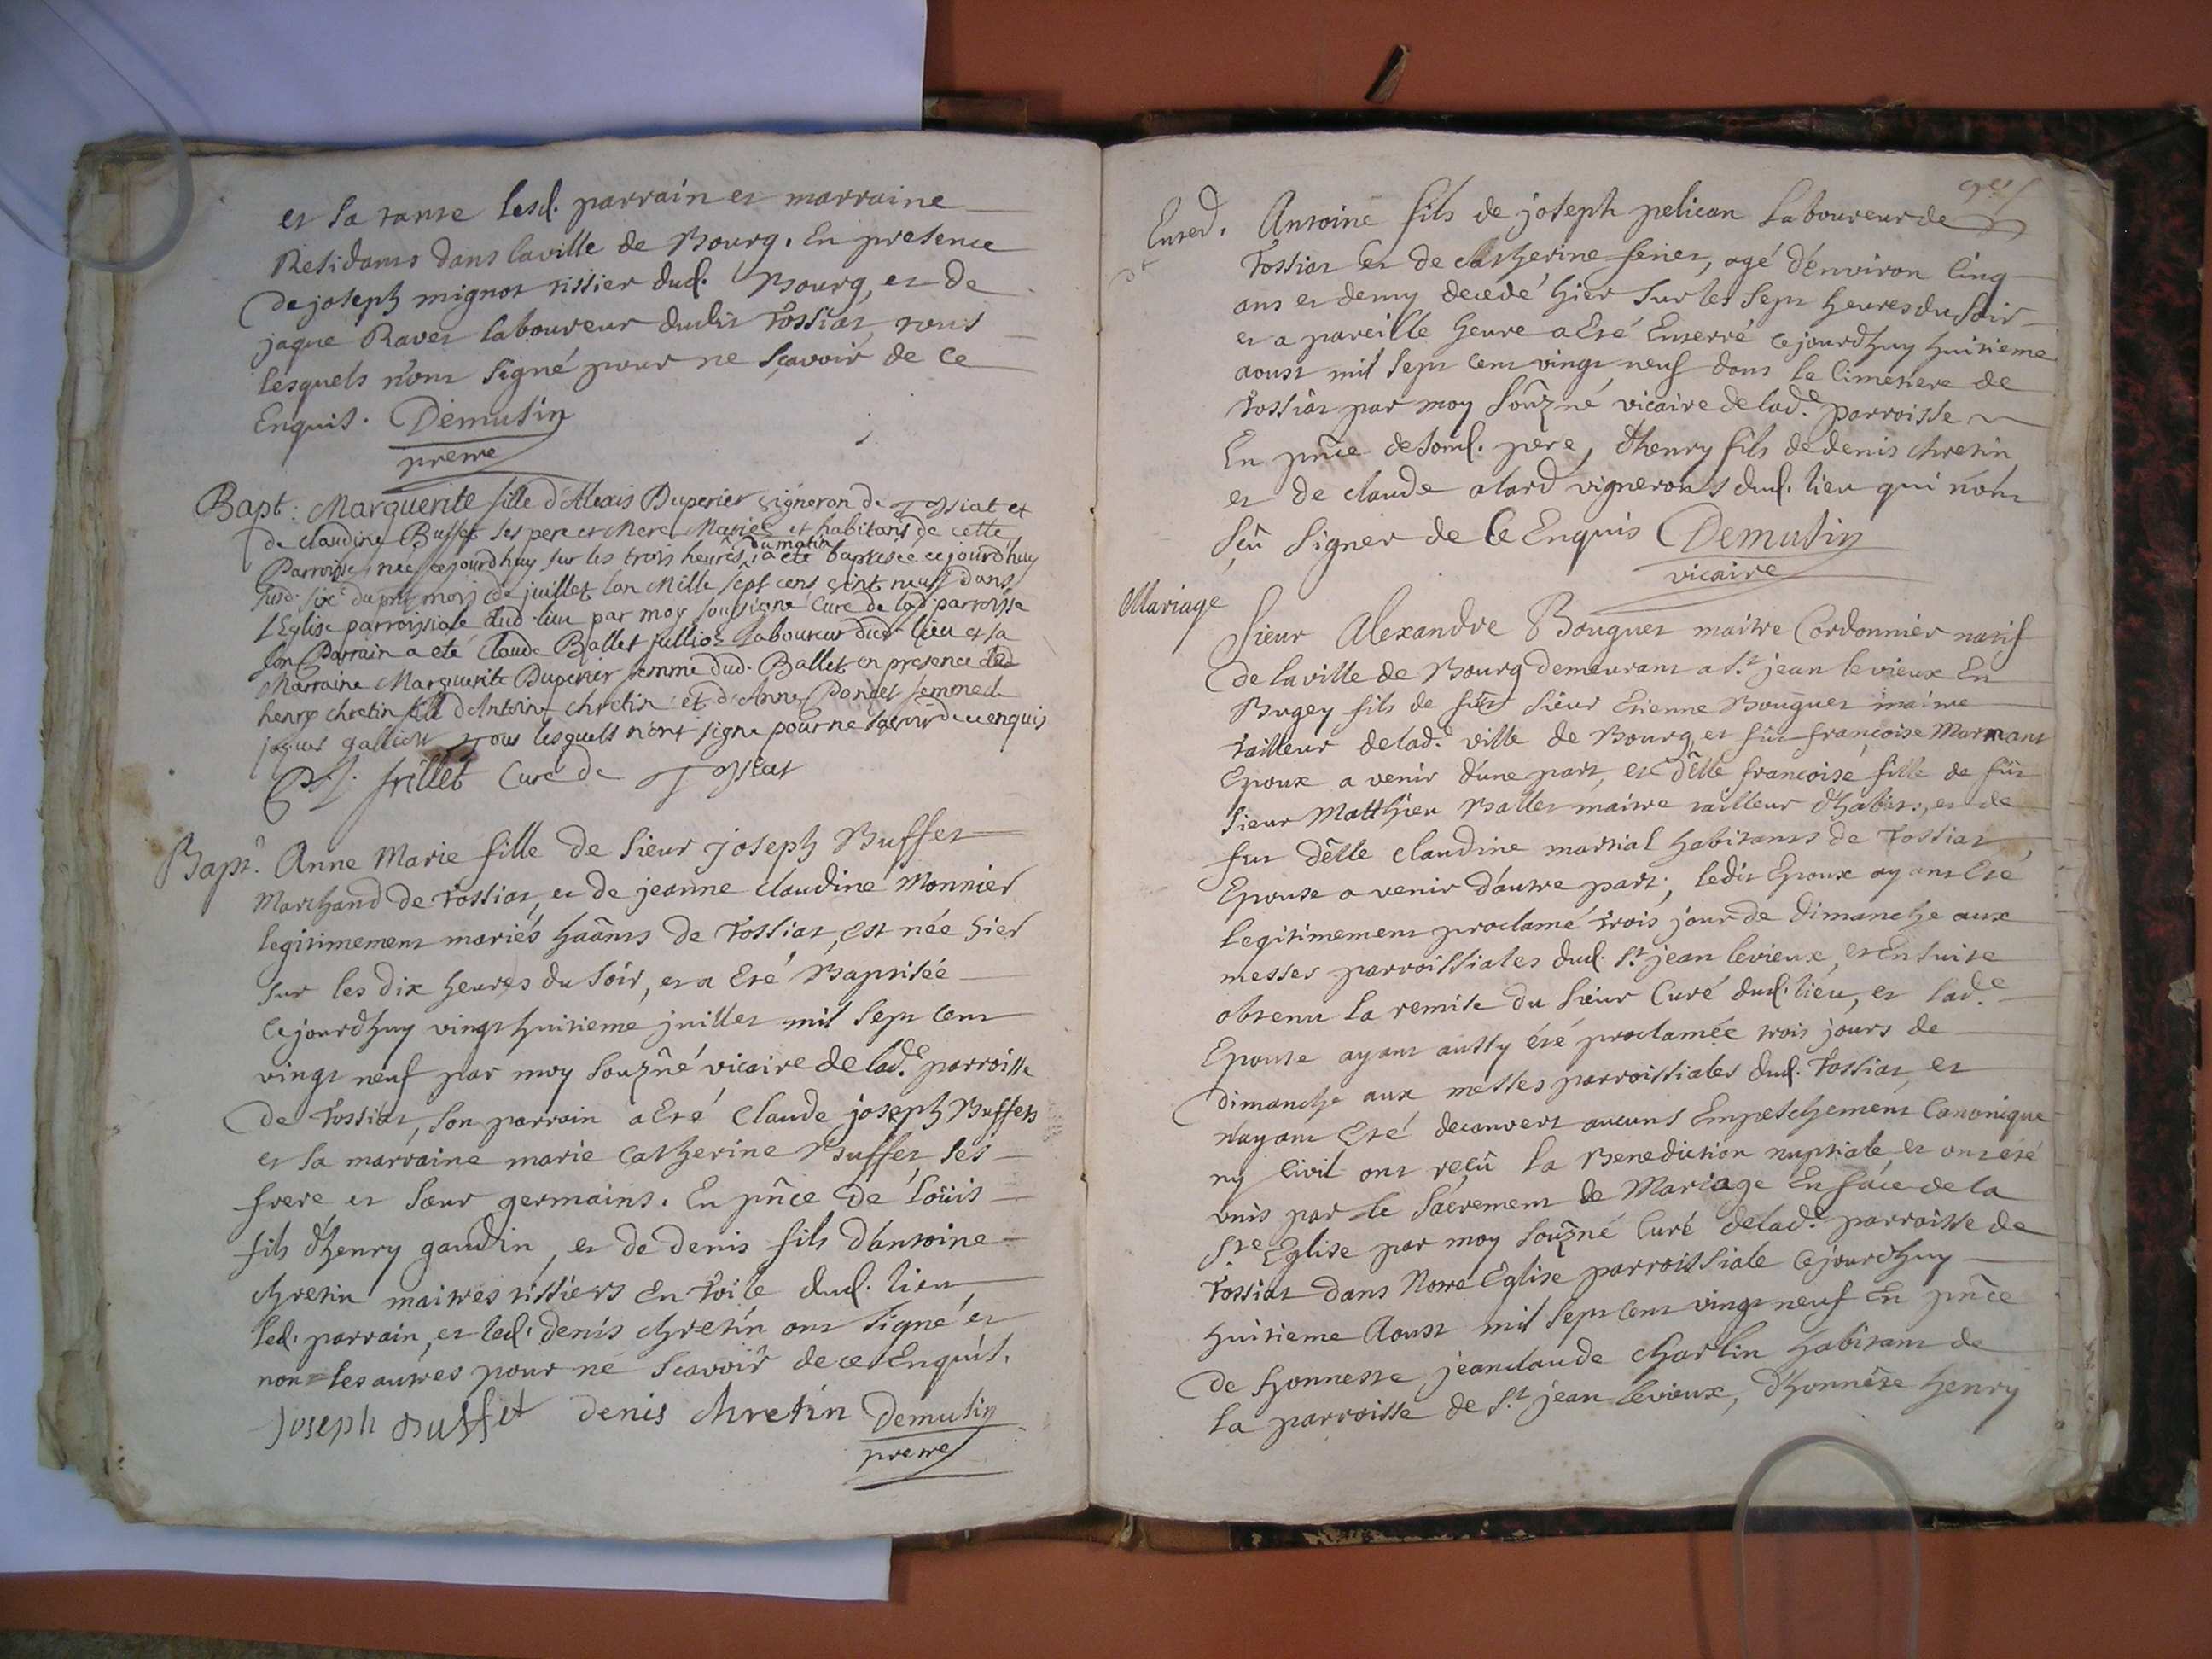 et sa tante lesd. parrain et marraine
Residants dans la ville de Bourg. En presence
de joseph mignot tissier dud. Bourg, et de
jaque Ravet laboureur dudit Tossiat, tous
lesquels n'ont signé pour ne sçavoir de ce
Enquis. Demusin
pretre
Bapt: Marguerite fille d'Alexis Duperier vigneron de Tossiat et
de claudine Buffet ses pere et Mere Mariés et habitans de cette
Parroisse née cejourdhuy sur les trois heures du matin, a eté baptisée cejourdhuy
susd. du mois de juillet lan Mille sept cens vint neuf dans
l'Eglise parroissiale dud. lieu par moy soussigné Curé de lad. parroisse
son Parrain a eté Claude Ballet jullion laboureur dud. lieu et sa
Marraine Marguerite Duperier femme dud. Ballet en presence de
henry chretin fils d'Antoine chretin et d'Anne Poncet femme de
jaques tous lesquels n'ont signé pour ne sçavoir de ce enquis
frillet Curé de Tossiat
Bapt. Anne Marie fille de Sieur joseph Buffet
Marchand de Tossiat, et de jeanne claudine Monnier
legitimement mariés haânts de Tossiat, est née hier
sur les dix heures du soir, et a Eté Baptisée
cejourdhuy vingt huitieme juillet mil sept cent
vingt neuf par moy souzné vicaire de lad.e parroisse
de Tossiat, son parrain a Eté Claude joseph Buffet
et sa marraine marie Catherine Buffet, ses
frere et sœur germains. En pñce de Loüis
fils d'henry gaudin, et de denis fils d'antoine
chretin maitres tissiers En toile dud. lieu,
led. parrain, et led. denis chretin ont signé et
non les autres pour ne scavoir de ce Enquis.
Joseph Buffet denis chretin Demusin
pretre
Enterd. Antoine fils de joseph pelican laboureur de
Tossiat et de catherine feriet, agé d'environ Cinq
ans et demy decedé hier sur les sept heures du soir
et a pareille heure a Eté Enterré cejourdhuy huitieme
aoust mil sept cent vingt neuf dans le Cimetiere de
Tossiat par moy souzné vicaire de lad.e parroisse
En pñce de sond. pere, d'henry fils de denis chretin
et de claude alard vignerons dud. lieu qui n'ont
sçû signer de Ce Enquis Demusin
vicaire
Mariage
Sieur Alexandre Bouguet maitre Cordonnier natif
de la ville de Bourg demeurant a St jean le vieux En
Bugey fils de fût sieur Etienne Bouguet maitre
tailleur de lad.e ville de Bourg, et fût francoise Marmant
Epoux a venir d'une part, et dêlle francoise fille de fût
sieur Matthieu Ballet maitre tailleur d'habits, et de
fut dêlle claudine martial habitants de Tossiat,
Epouse a venir d'autre part; ledit Epoux ayant Eté
legitimement proclamé trois jour de dimanche aux
messes parroissiales dud. St jean levieux, et Ensuite
obtenu la remise du sieur Curé dud. lieu, et lad.e
Epouse ayant aussy été proclamée trois jours de
dimanche aux messes parroissiales dud. Tossiat, et
n'ayant Eté decouvert aucuns Empeschement Canonique
ny Civil ont reçû la Benediction nuptiale, et ont été
unis par le sacrement de Mariage En face de la
Ste Eglise par moy souzné Curé de lad.e parroisse de
Tossiat dans Notre Eglise parroissiale cejourdhuy
huitieme Aoust mil sept cent vingt neuf En pñce
de honneste jeanclaude charlin habitant de
la parroisse de St jean levieux, d'honnête henry